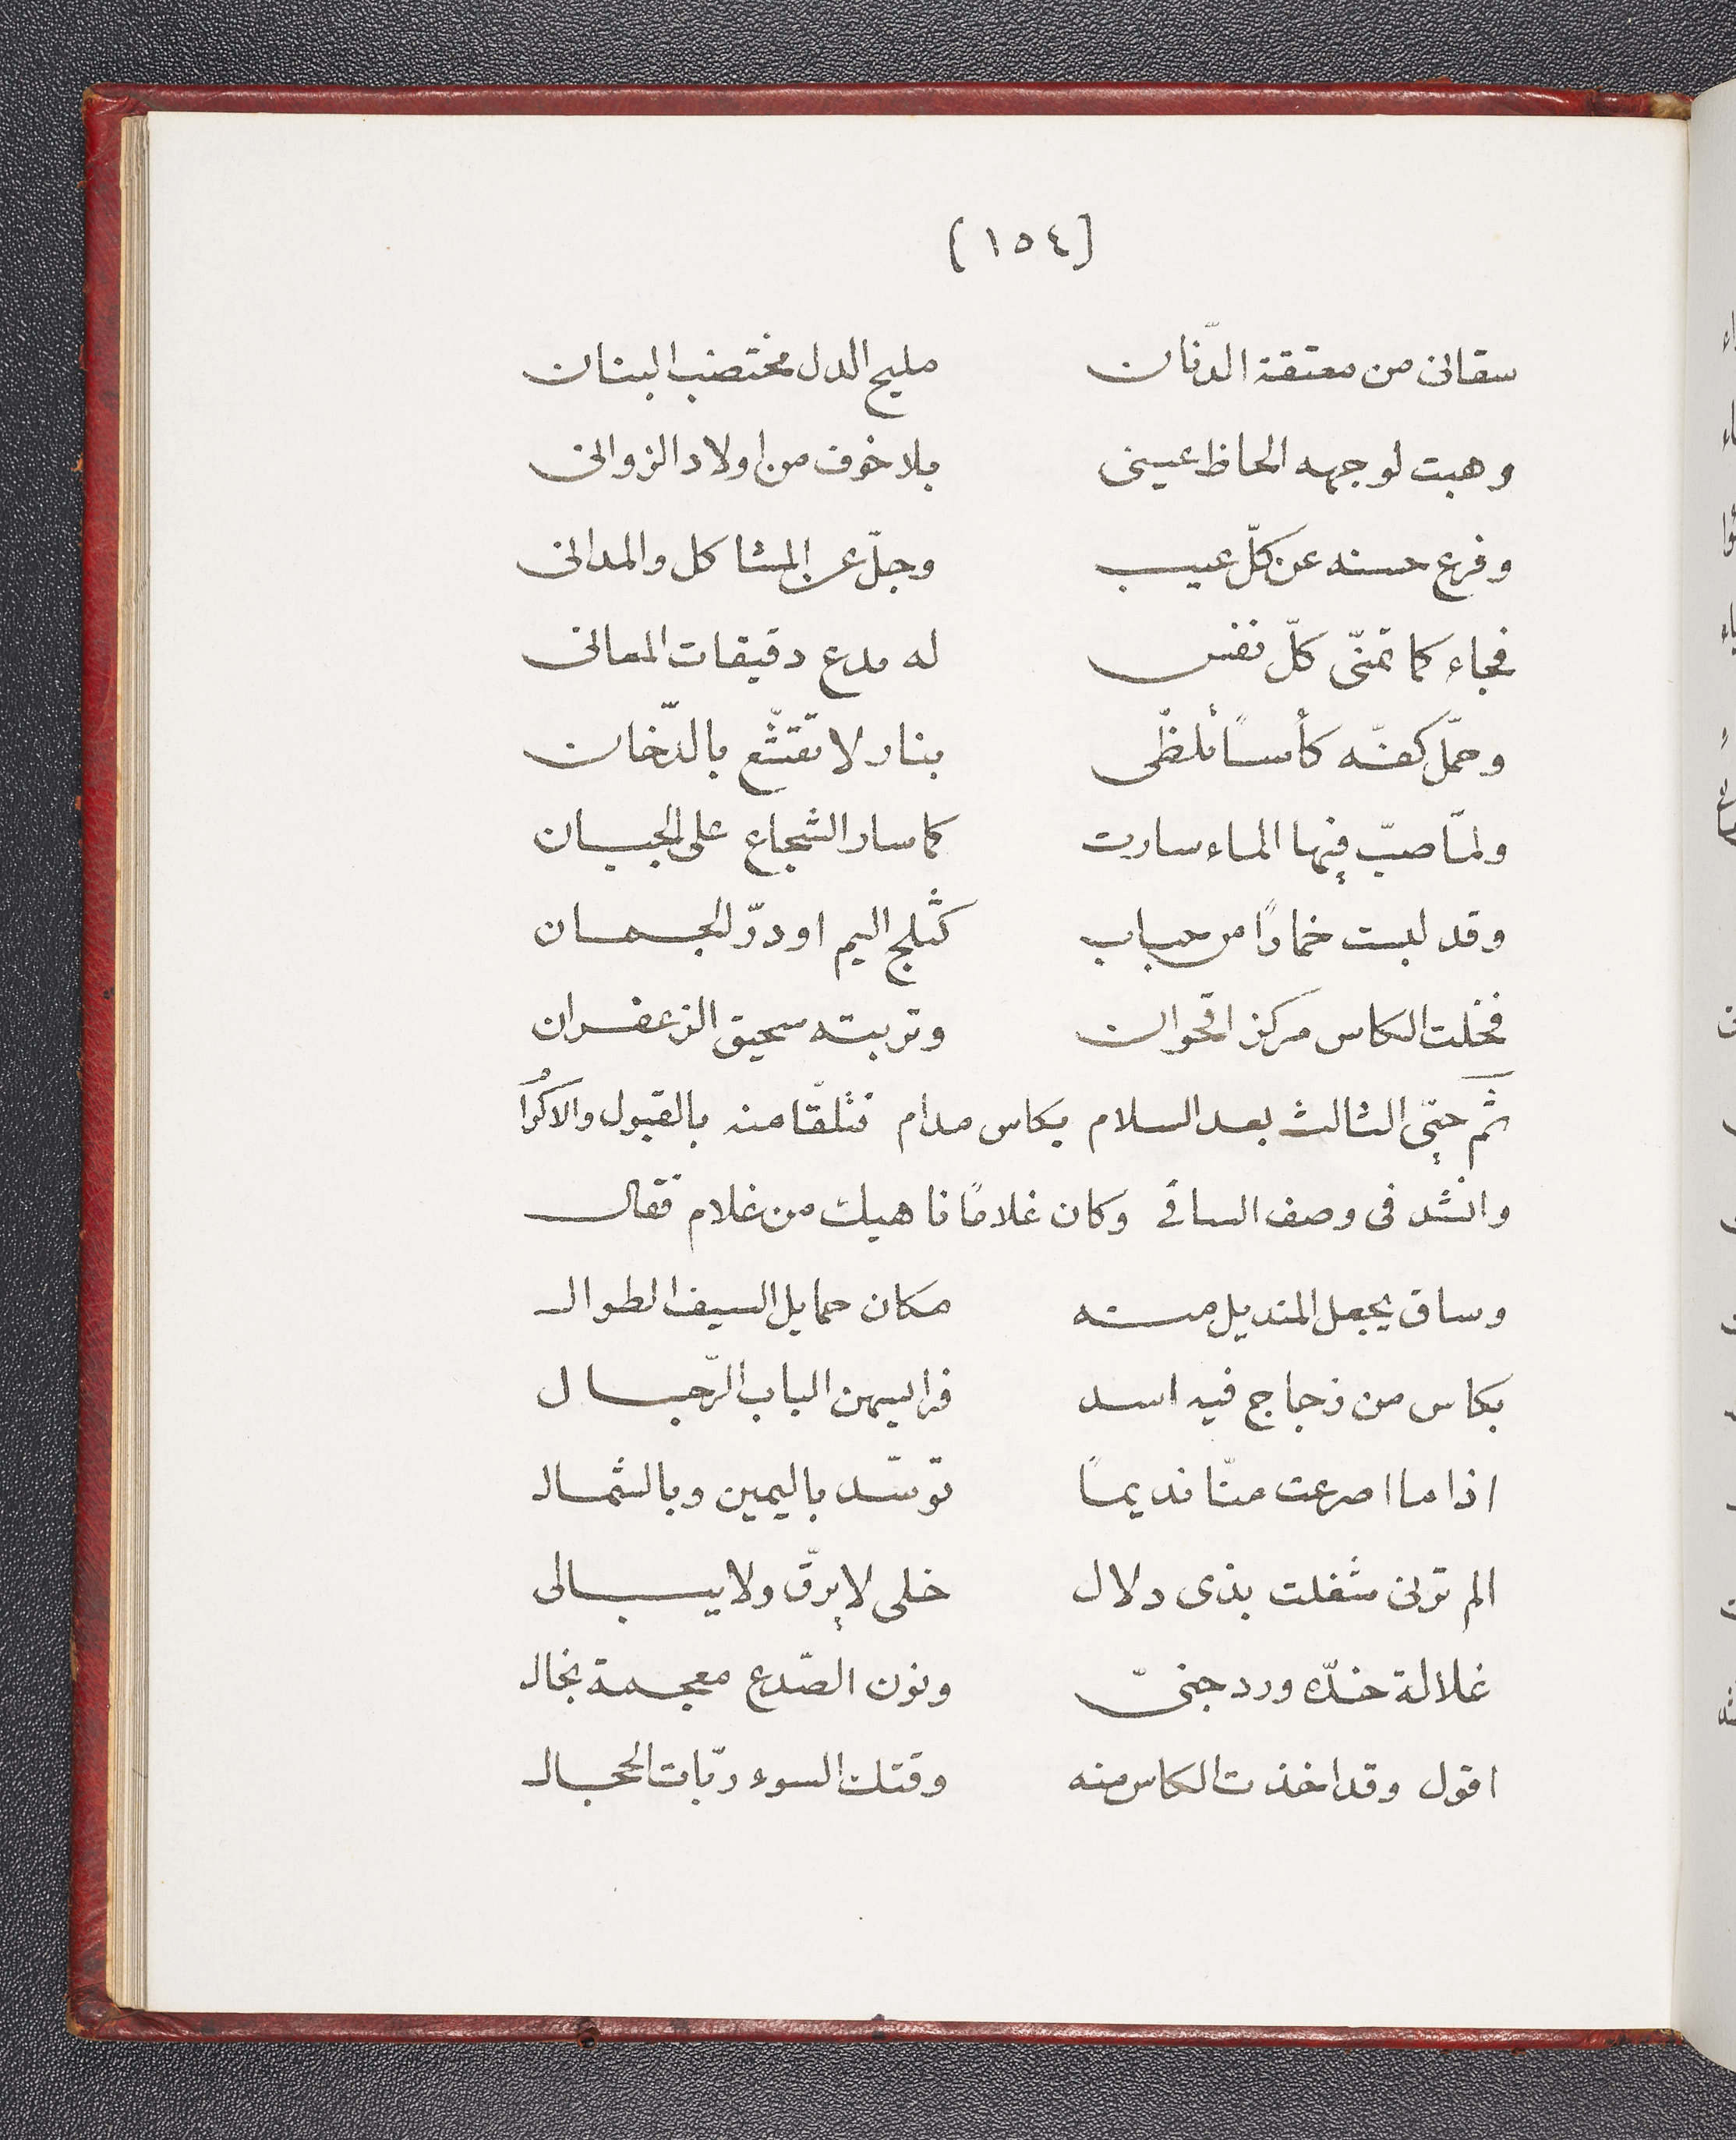 (١٥٤)
سقانى من معتقة الدّنان مليح الدل مختضب البنان
وهبت لوجهه الحاظ عينى بلا خوف من اولاد الزوانى
وفرع حسنه عن كلّ عيب وجلّ عن المشاكل والمدانى
فجاء كما تمنّى كلّ نفس له مدع دقيقات المعانى
وحمّل كفّه كأسًا تلظّى بنار لا تقنّع بالدّخان
ولمّا صبّ فيها الماء سارت كما سار الشجاع على الجبان
وقد لبست خمارًا من حباب كثلج اليم او درّ الجمان
فخلت الكاس مركز اقحوان وتربته سحيق الزعفران
ثم حيّى الثالث بعد السلام بكاس مدام فتلقّا منه بالقبول والاكرام
وانشد فى وصف الساقى وكان غلامًا ناهيك من غلام فقال
وساق يجعل المنديل منه مكان حمايل السيف الطوال
بكاس من زجاج فيه اسد فرايسهن الباب الرّجال
اذا ما اصرعت منّا نديمًا توسّد باليمين وبالشمال
الم ترنى شغلت بذى دلال خلى لا يرقّ ولا يبالى
غلالة خدّه ورد جنىّ ونون الصّدع معجمة بخال
اقول وقد اخذت الكاس منه وقتك السوء ربّات الحجال